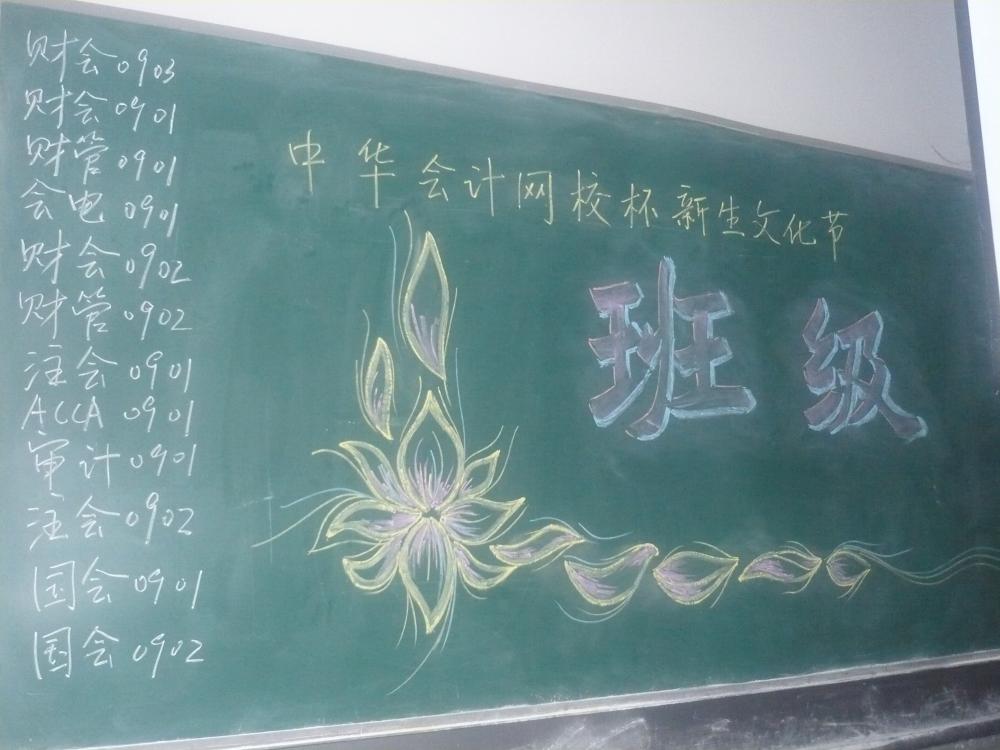 财会0903
财会0901
财管0901
会电0901
财会0902
财管0902
注会0901
ACCA0901
审计0901
注会0902
国会0901
国会0902
中华会计网校杯新生文化节
班级